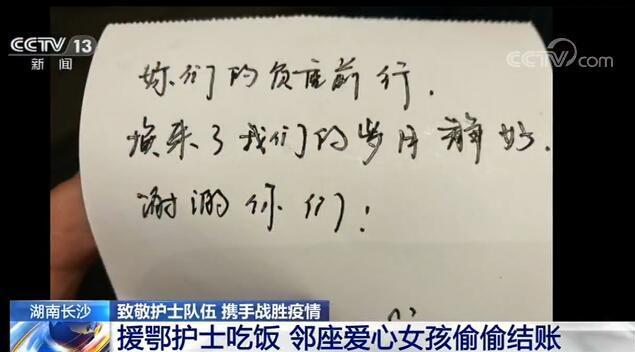 CCTV 13
新闻
CCTV.com
你们的负重前行.
换来了我们的岁月静好.
谢谢你们!
湖南长沙
致敬护士队伍 携手战胜疫情
援鄂护士吃饭 邻座爱心女孩偷偷结账